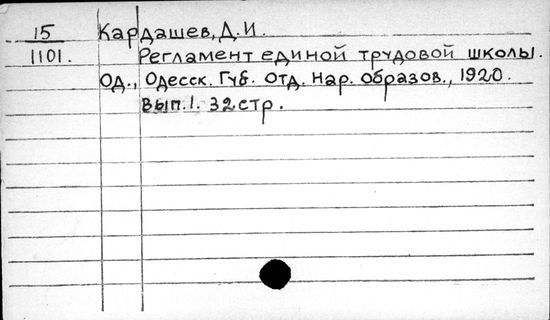 15 Кардашев, Д. И.
1101. Регламент единой трудовой школы.
Од., Одесск. Губ. Отд. Нар. Образов., 1920.
Вып. 1. 32 стр.